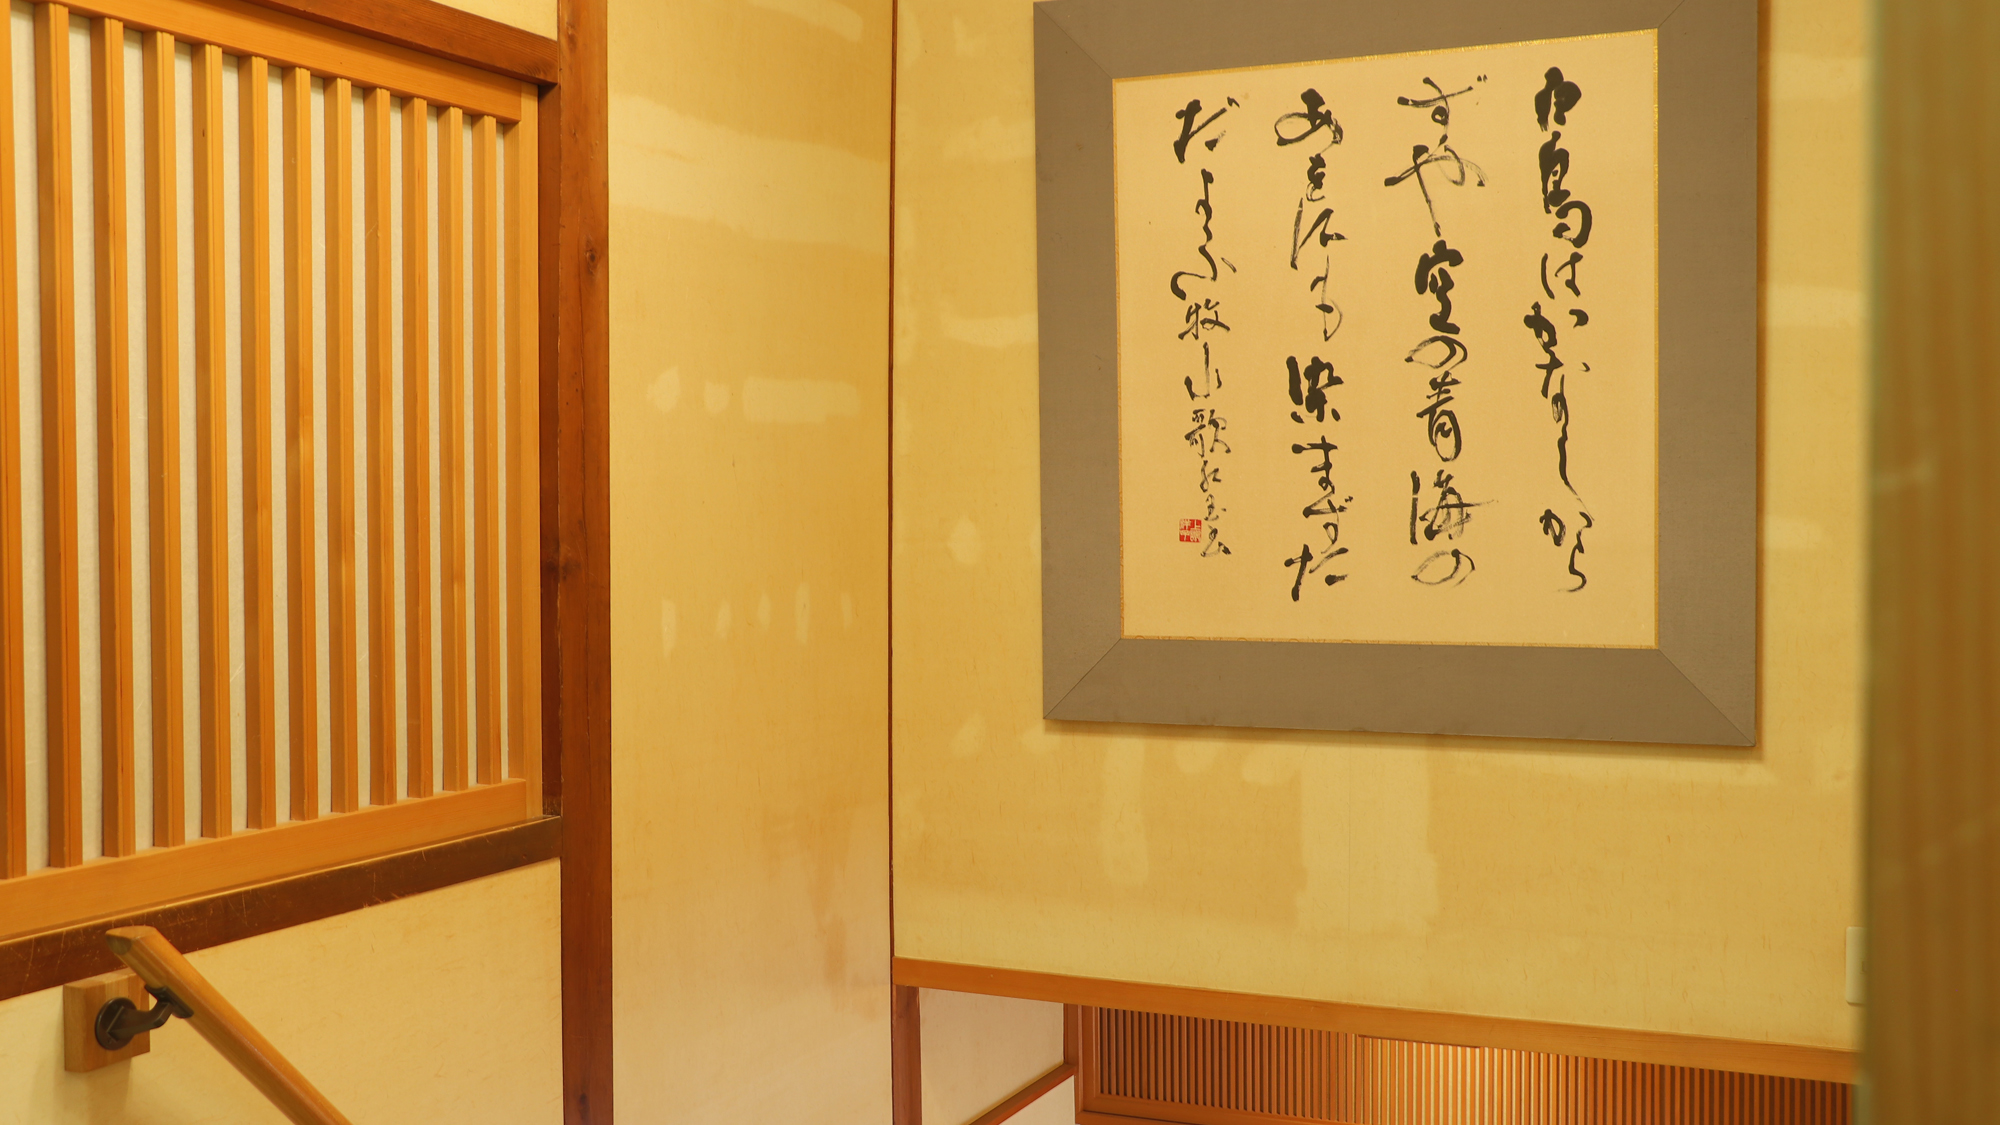 白鳥はかなしから
ずや空の青海の
あをにも染まずた
だよふ牧水歌